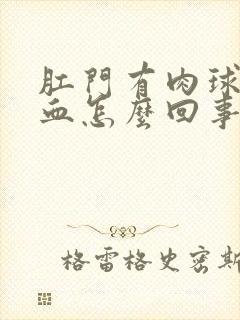 肛門有肉球
血怎麼回事
格雷格史密斯